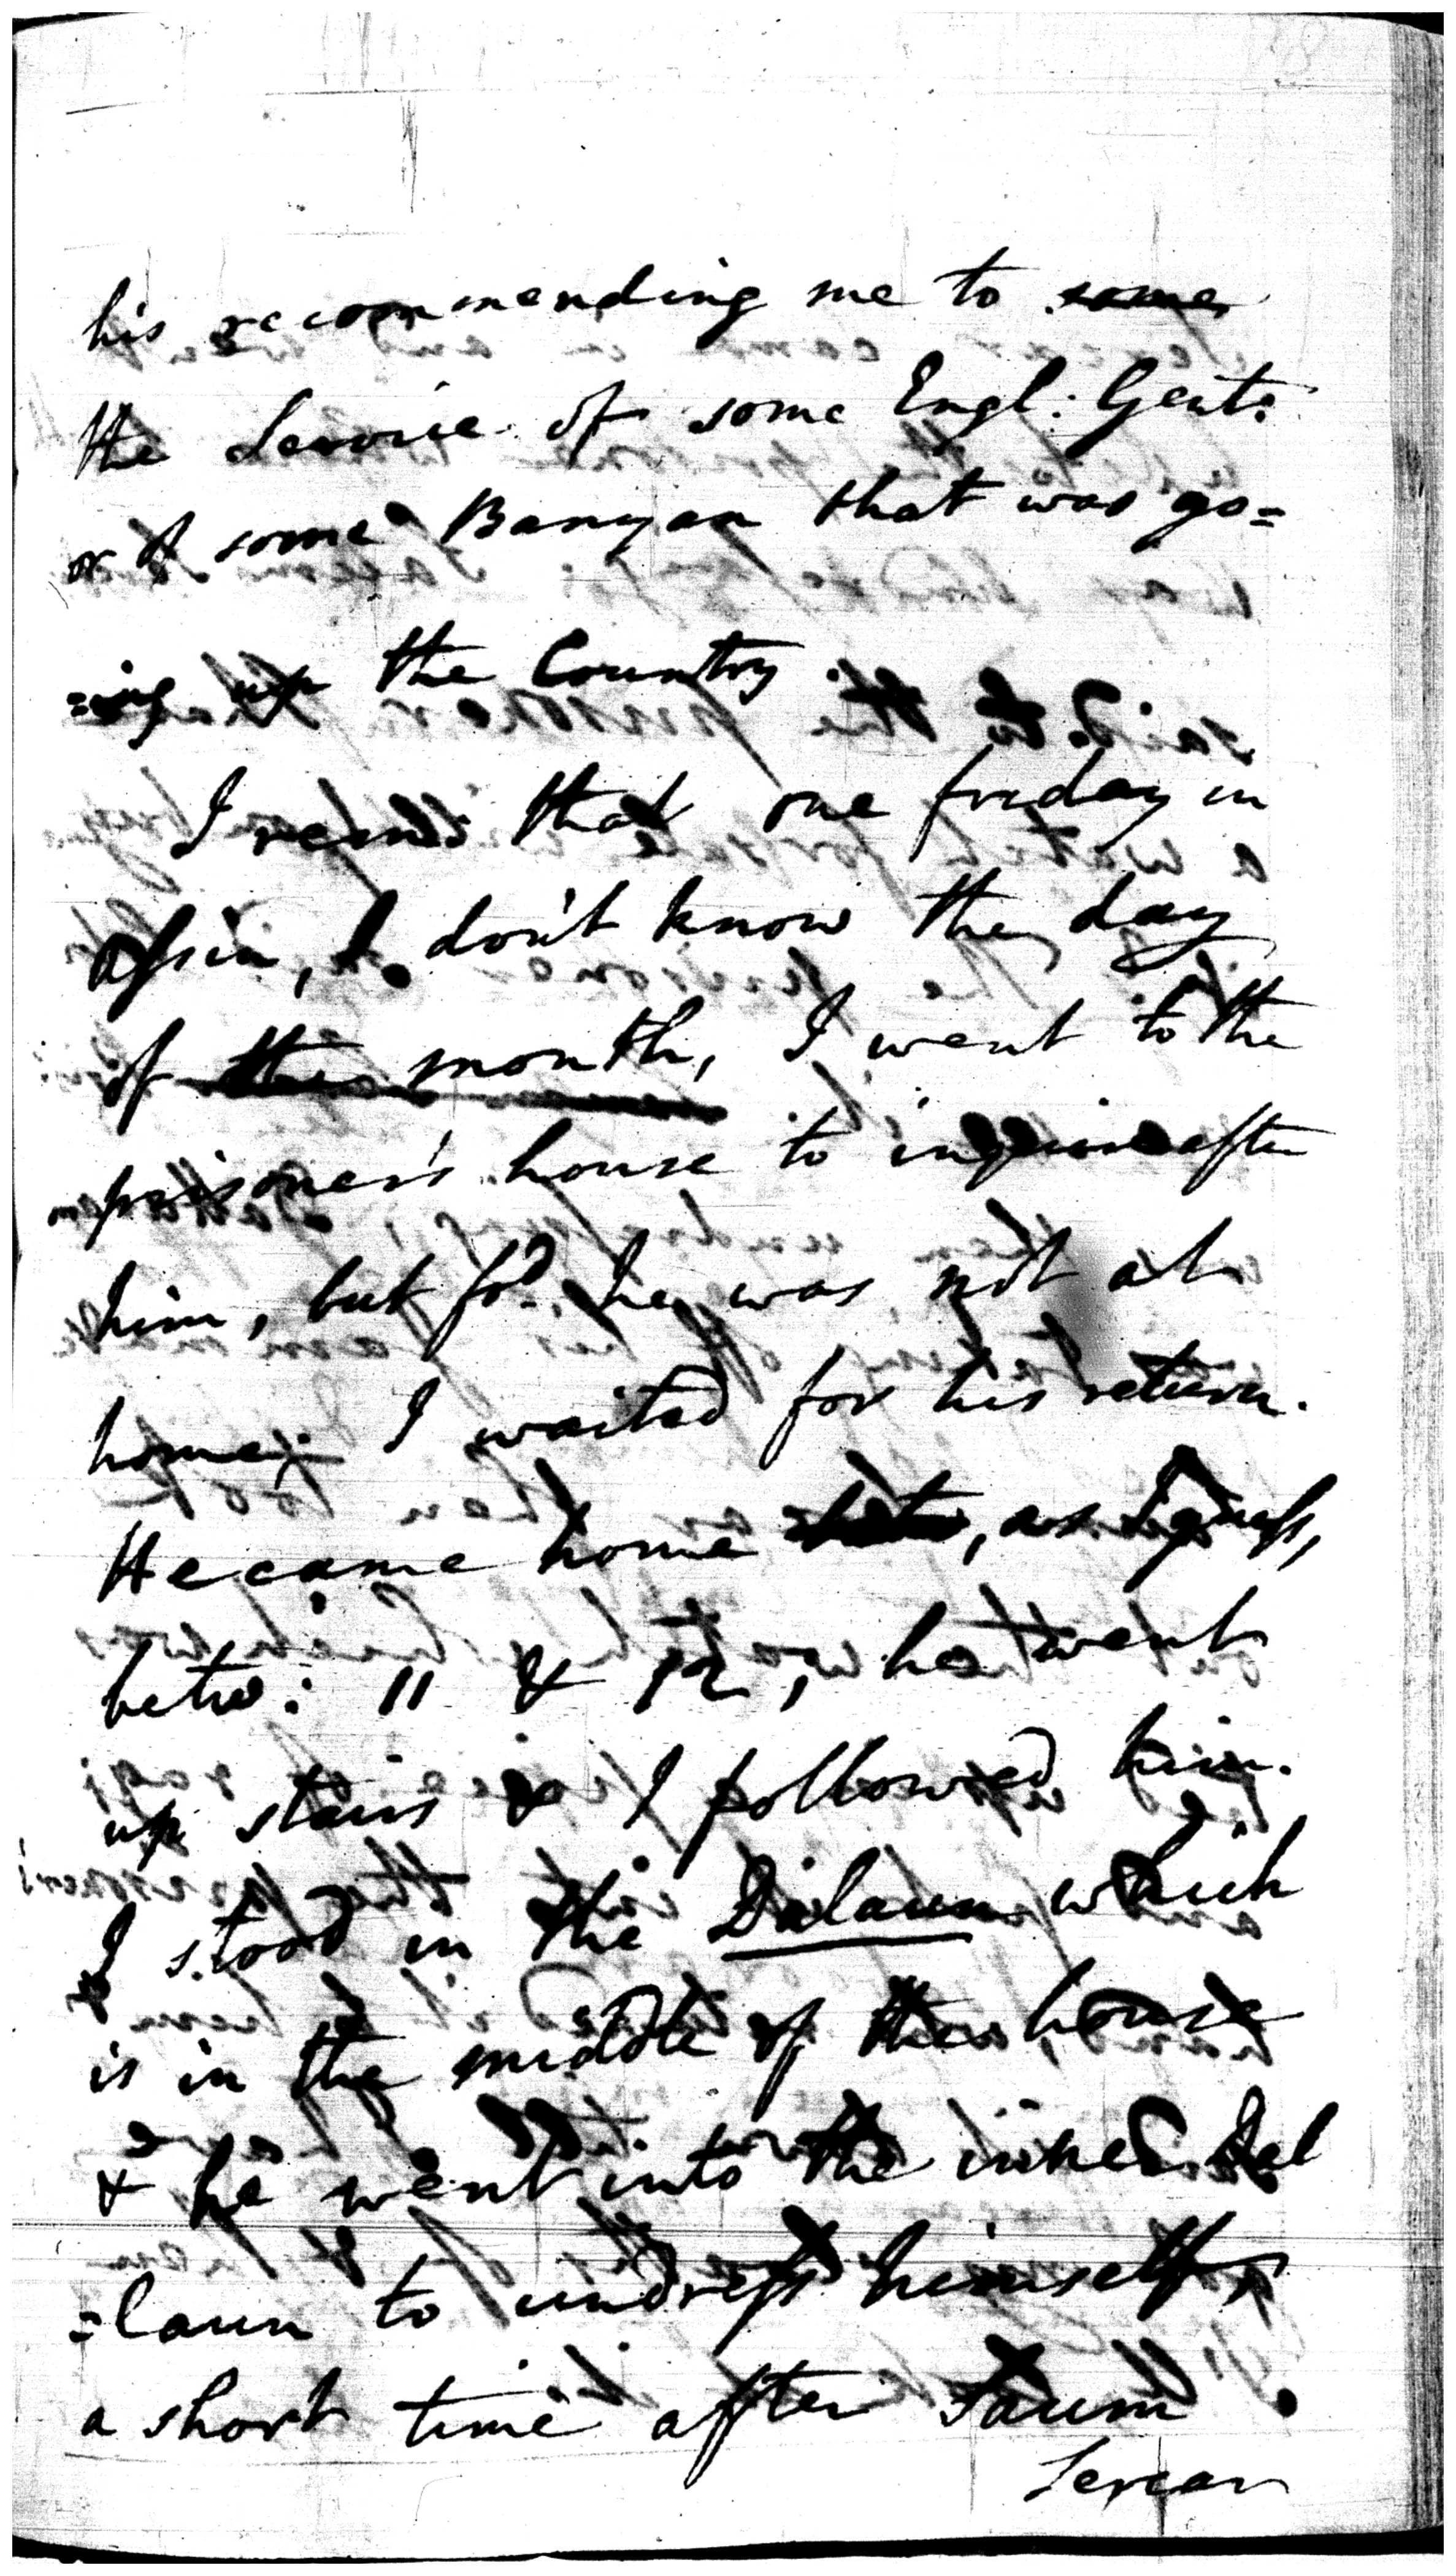 his recommending me to some
the Service of some Engl: Gent:
or of some Banyan that was go=
=ing up the Country
I rem: that one friday in
Assin, I don't know the day
of the month, I went to the
prisoner's house to inquire after
him, but fo.d he was not at
home; I waited for his return.
He came home, as I guess,
betw: 11 & 12, he went
up stairs & I followed him.
& I stood in the Dalaun which
is in the middle of the house
& he went into the inner Dal
=laun to undress himself,
a short time after Saum
Sercar